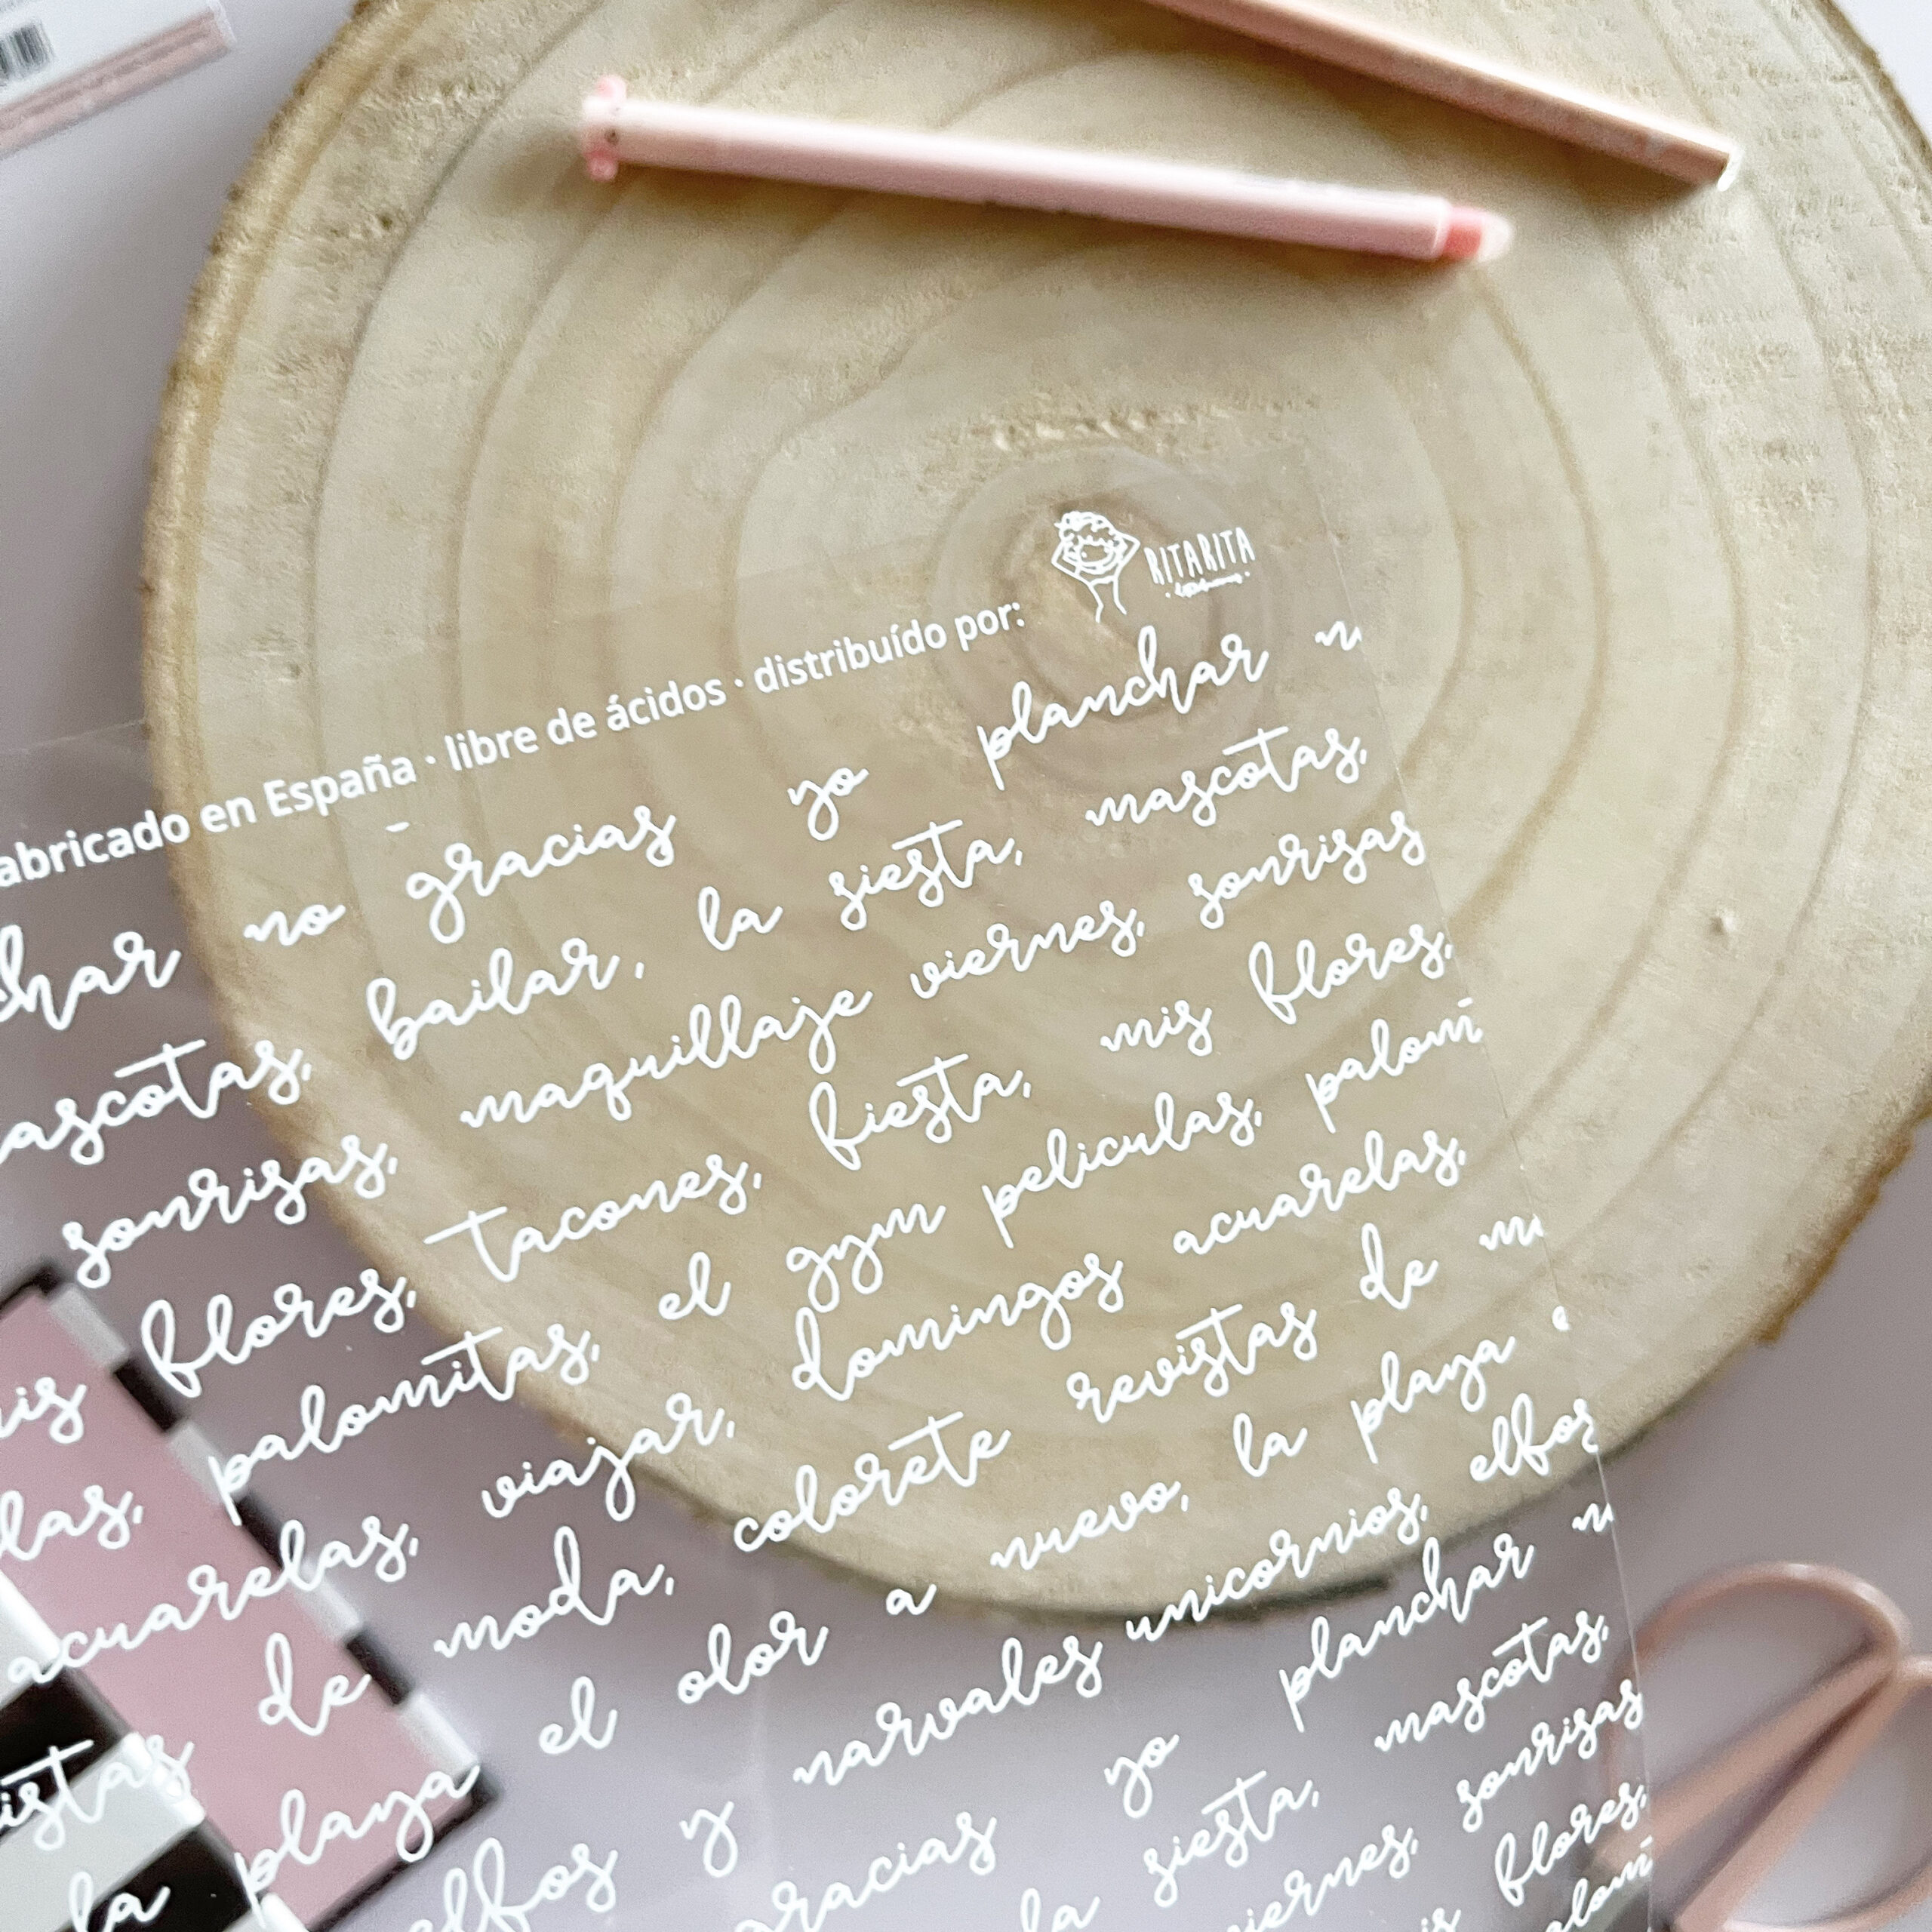 RITARITA
abricado en España · libre de ácidos · distribuído por:
char no gracias yo planchar
ascotas, bailar, la siesta, mascotas,
sonrisas, maquillaje viernes, sonrisas
is flores, tacones, fiesta, mis flores,
las, palomitas, el gym peliculas, palom
acuarelas, viajar, domingos acuarelas,
istas de moda, colorete revistas de m
la playa el olor a nuevo, la playa
elfos y narvales unicornios, elfos
gracias yo planchar
la siesta, mascotas,
viernes, sonrisas
is flores,
alom